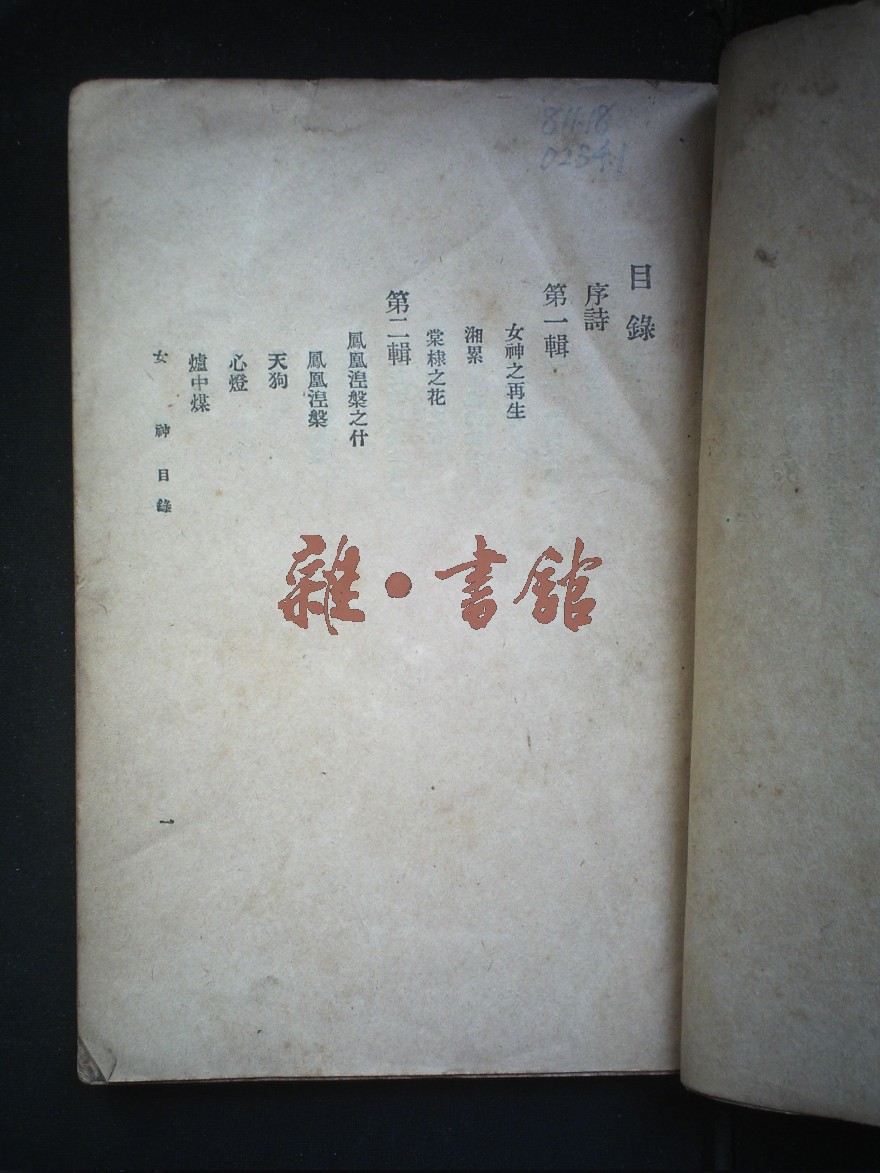 811.18
0234.1
目錄
序詩
第一輯
女神之再生
湘累
棠棣之花
第二輯
鳳凰湼槃之什
鳳凰湼槃
天狗
心燈
爐中煤
女神目錄
一
雜·書館